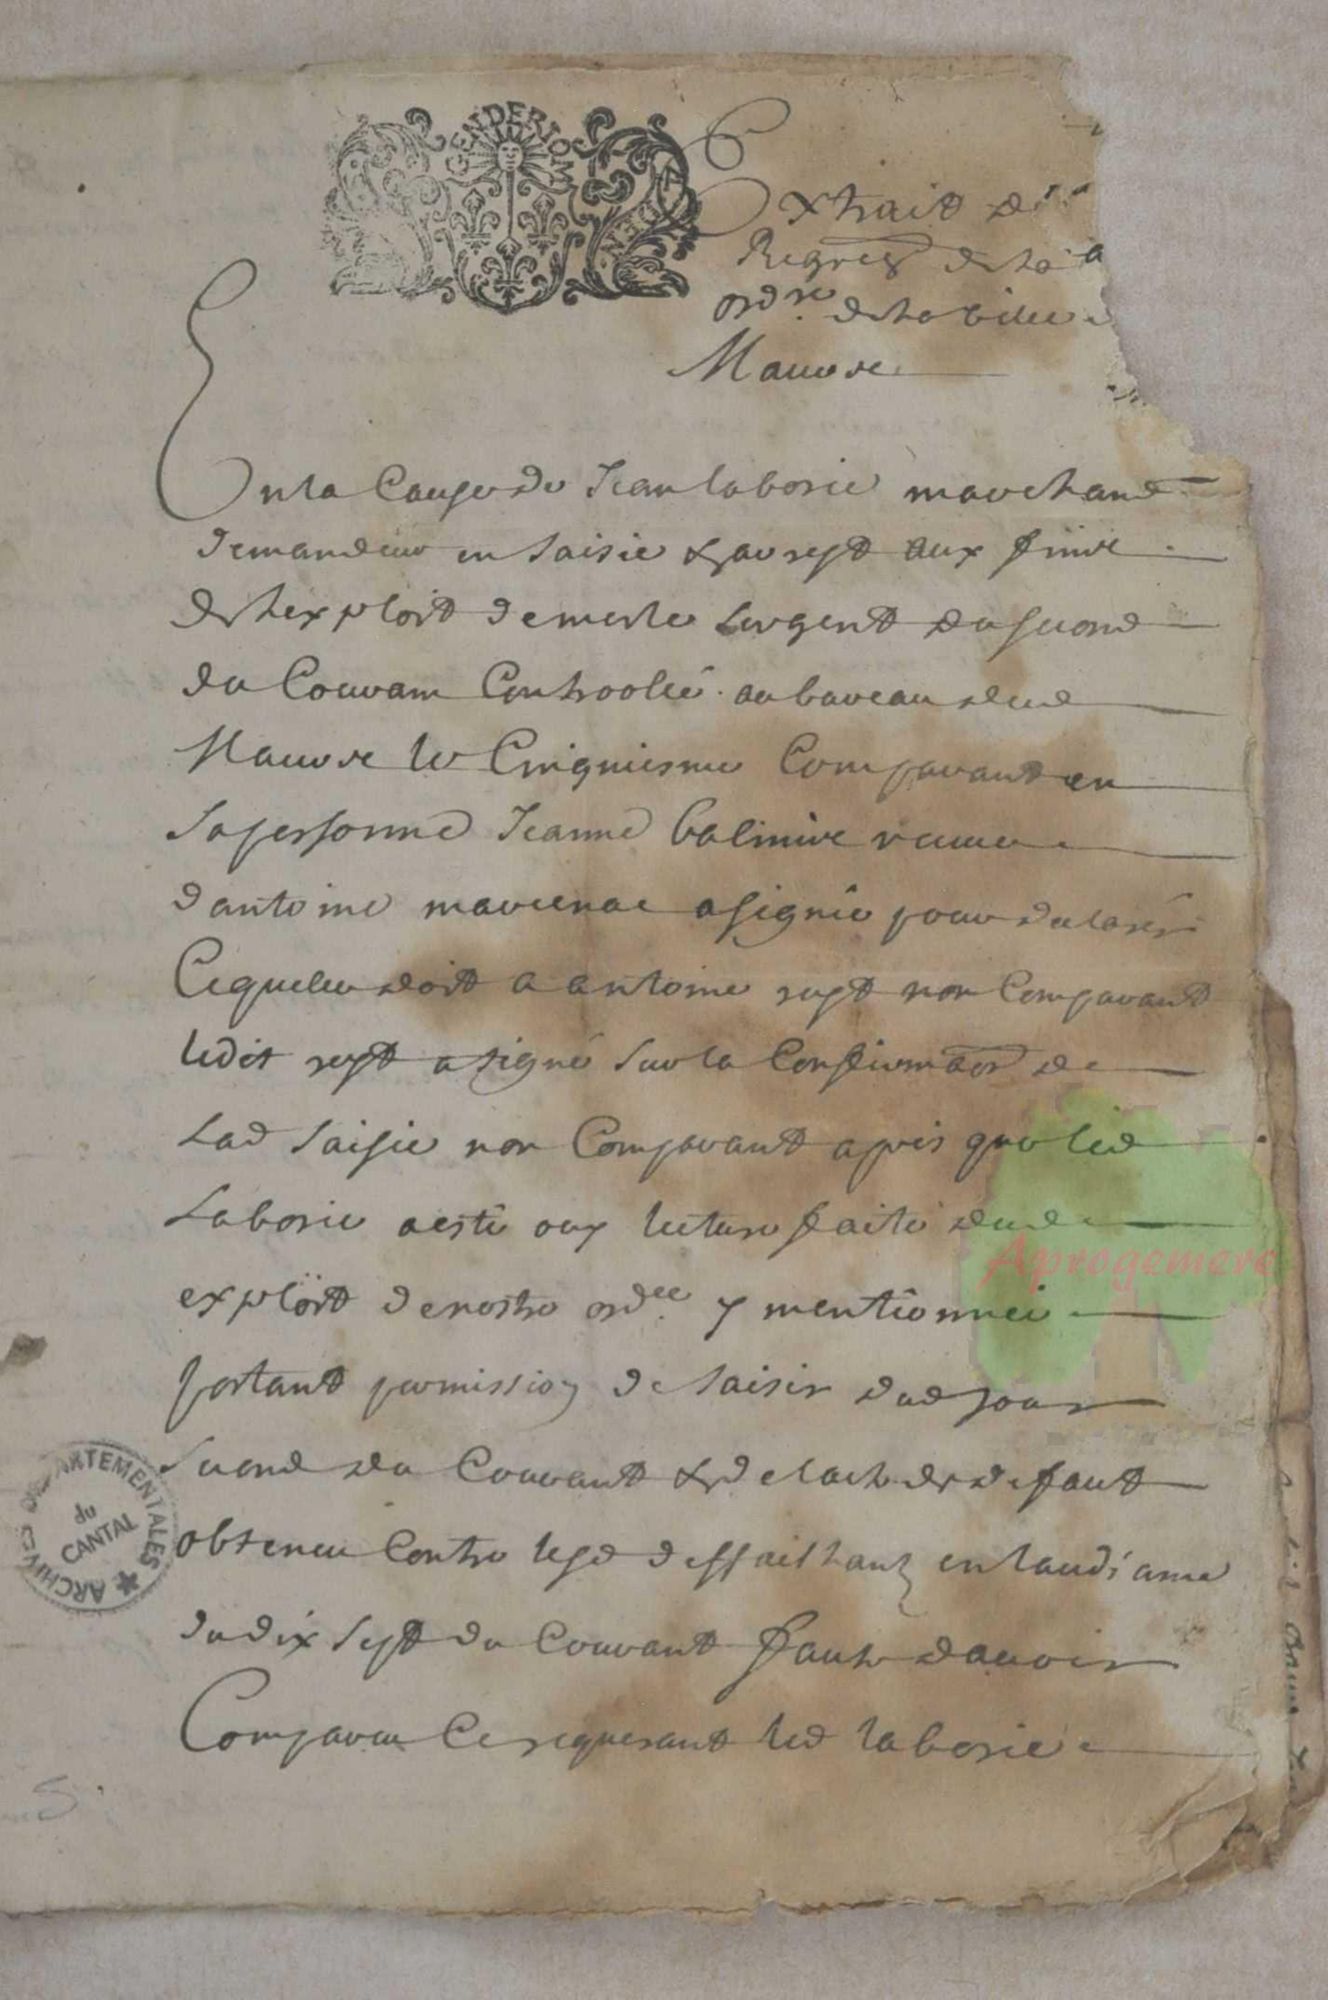 GENDERIOM
Extrait de
Regres de la
ordre de la ville
Mauvre
En la Cause de Jean laborie marchand
demandeur en saisie & arrest aux fins
de lexploit de merle sergent du second
du Couvam Controolé au bureau dud
Mauvre le Cinquiesme Comparant en
sa personne Jeanne veuve
dantoine assignée pour declarer
Ce quelle doit a antoine rept non Comparant
ledit rept assigné sur la Confirmaon de
Lad saisie non Comparant apres que led
Laborie a esté ouy lecture faite dud
exploit de nostre ordce y mentionnée
portant permission de saisir dud jour
second du Couvant & de lacte de defaut
obteneu Contre lesd deffailhantz en laudiance
du dix sept du Couvant faute davoir
Comparu Ce requerant led laborie
ARCHIVES DEPARTEMENTALES
du
CANTAL
Aprogemere